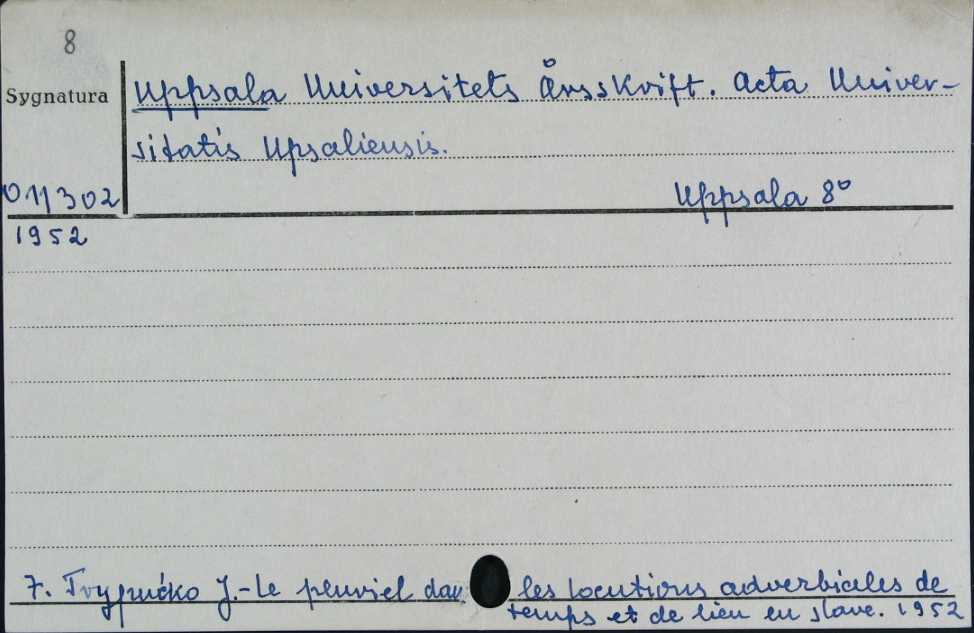 8
Sygnatura
Uppsala Universitets Årsskrift. Acta Univer-
sitatis Upsaliensis.
011302
Uppsala 8°
1952
7. Trypućko J.-Le pluriel dans les locutions adverbiales de
temps et de lieu en slave. 1952